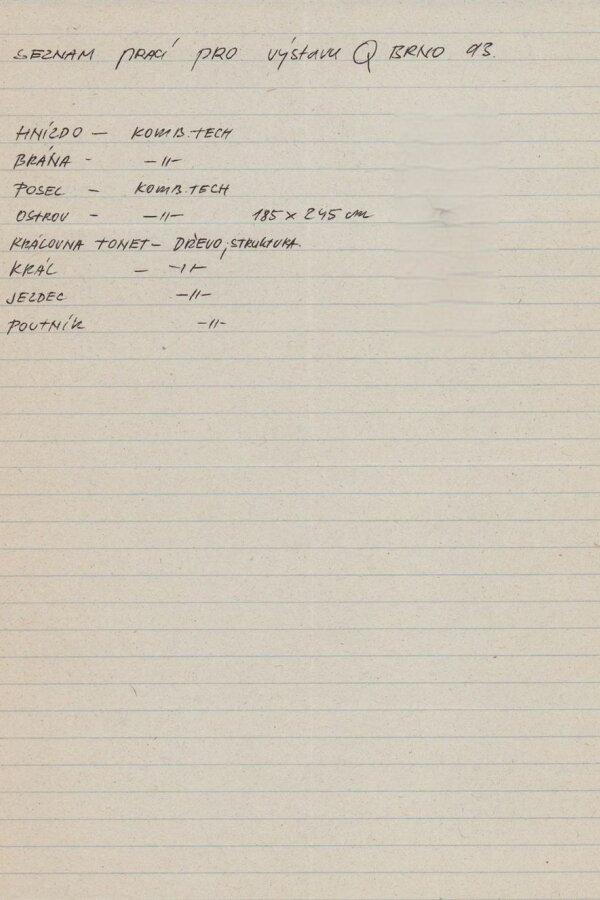 SEZNAM PRACÍ PRO výstavu Q BRNO 93.
HNÍZDO — KOMB. TECH
BRÁNA - —〃—
POSEL — KOMB. TECH
OSTROV - —〃— 185 x 245 cm
KRÁLOVNA TONET — DŘEVO, STRUKTURA.
KRÁL — —〃—
JEZDEC —〃—
POUTNÍK —〃—